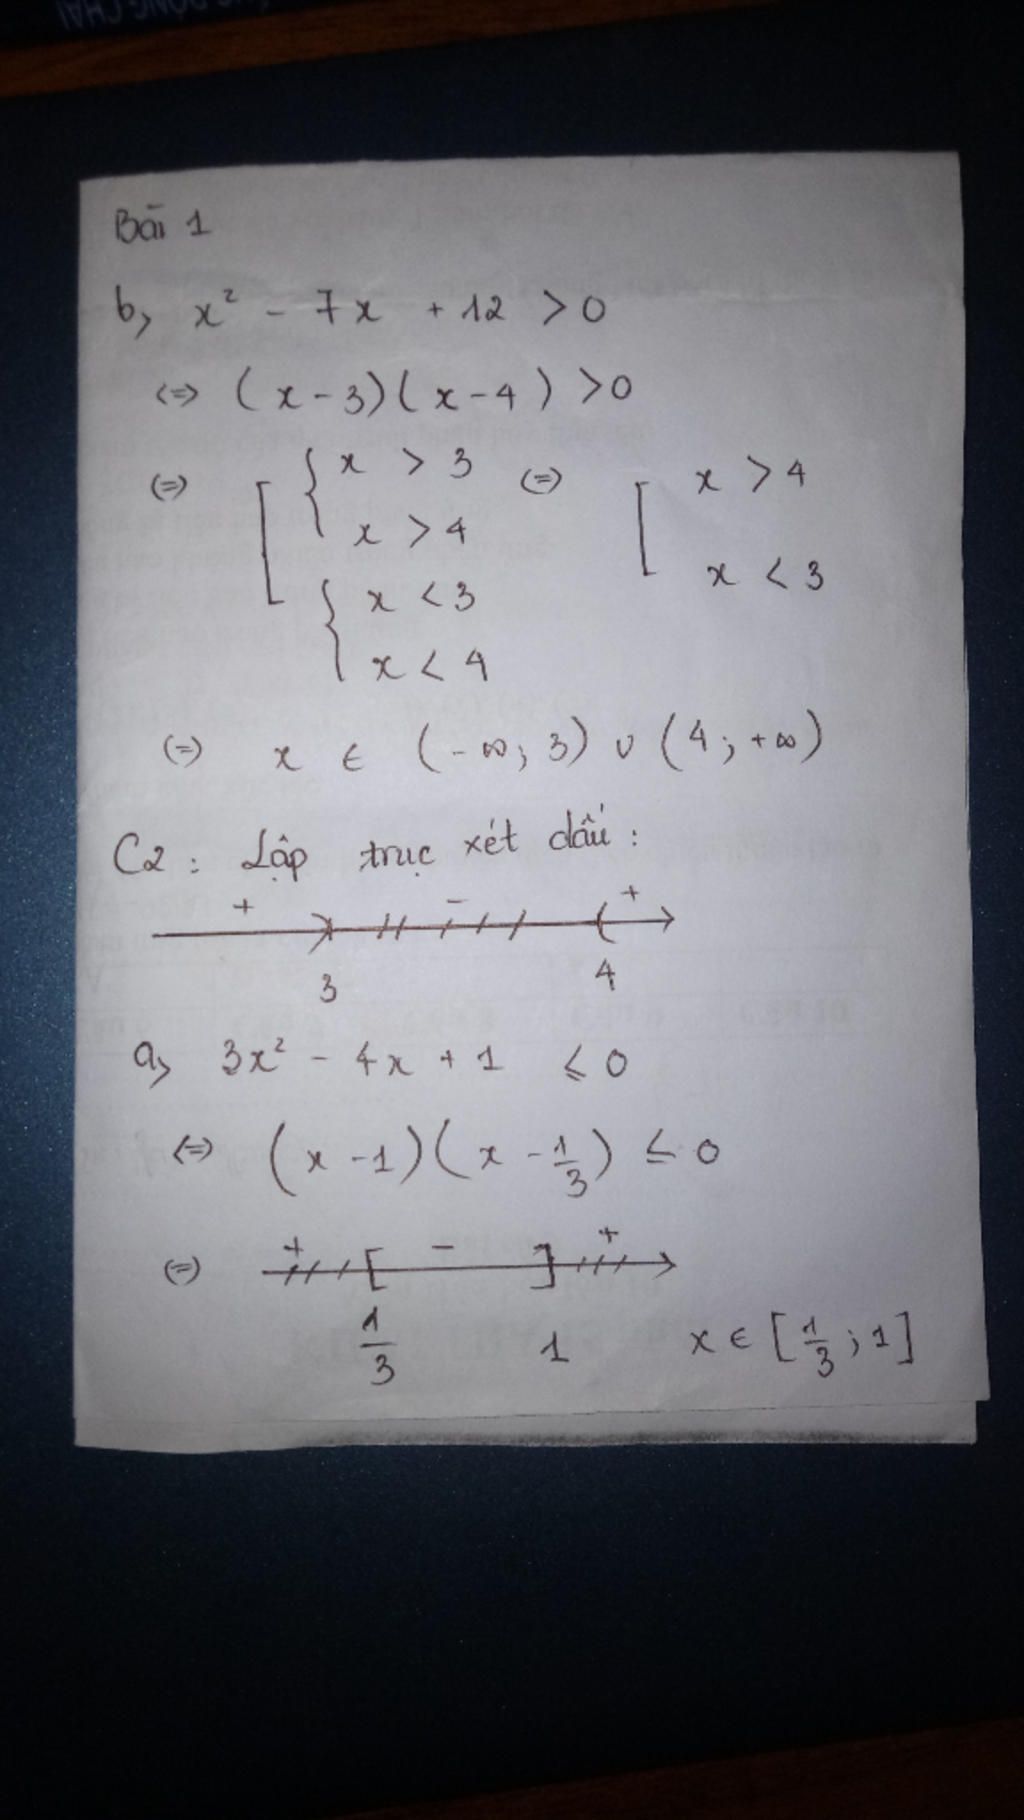 Bài 1
b, x² - 7x + 12 > 0
<=> (x - 3)(x - 4) > 0
(=) [ { x > 3 (=) [ x > 4
x > 4
x < 3
{ x < 3
x < 4
(=) x ∈ (-∞; 3) ∪ (4; +∞)
C2: Lập trục xét dấu:
+ - +
3 4
a, 3x² - 4x + 1 ≤ 0
<=> (x - 1)(x - 1/3) ≤ 0
(=) + [ - ] +
1/3 1 x ∈ [1/3; 1]